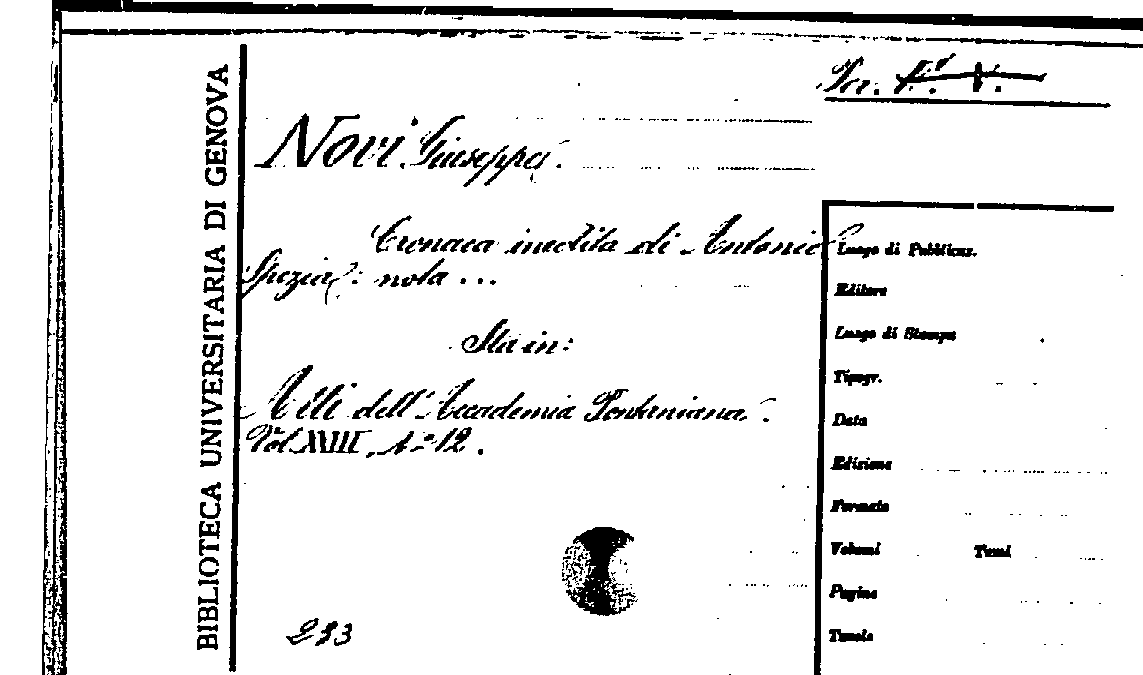 BIBLIOTECA UNIVERSITARIA DI GENOVA
Per. F. V.
Novi Giuseppe.
Cronaca inedita di Antonio
Spezia: nota ...
Sta in:
Atti dell'Accademia Pontaniana.
Vol. XVIII, N.º 12.
233
Luogo di Pubblicaz.
Editore
Luogo di Stampa
Tipogr.
Data
Edizione
Formato
Volumi Tomi
Pagine
Tavole